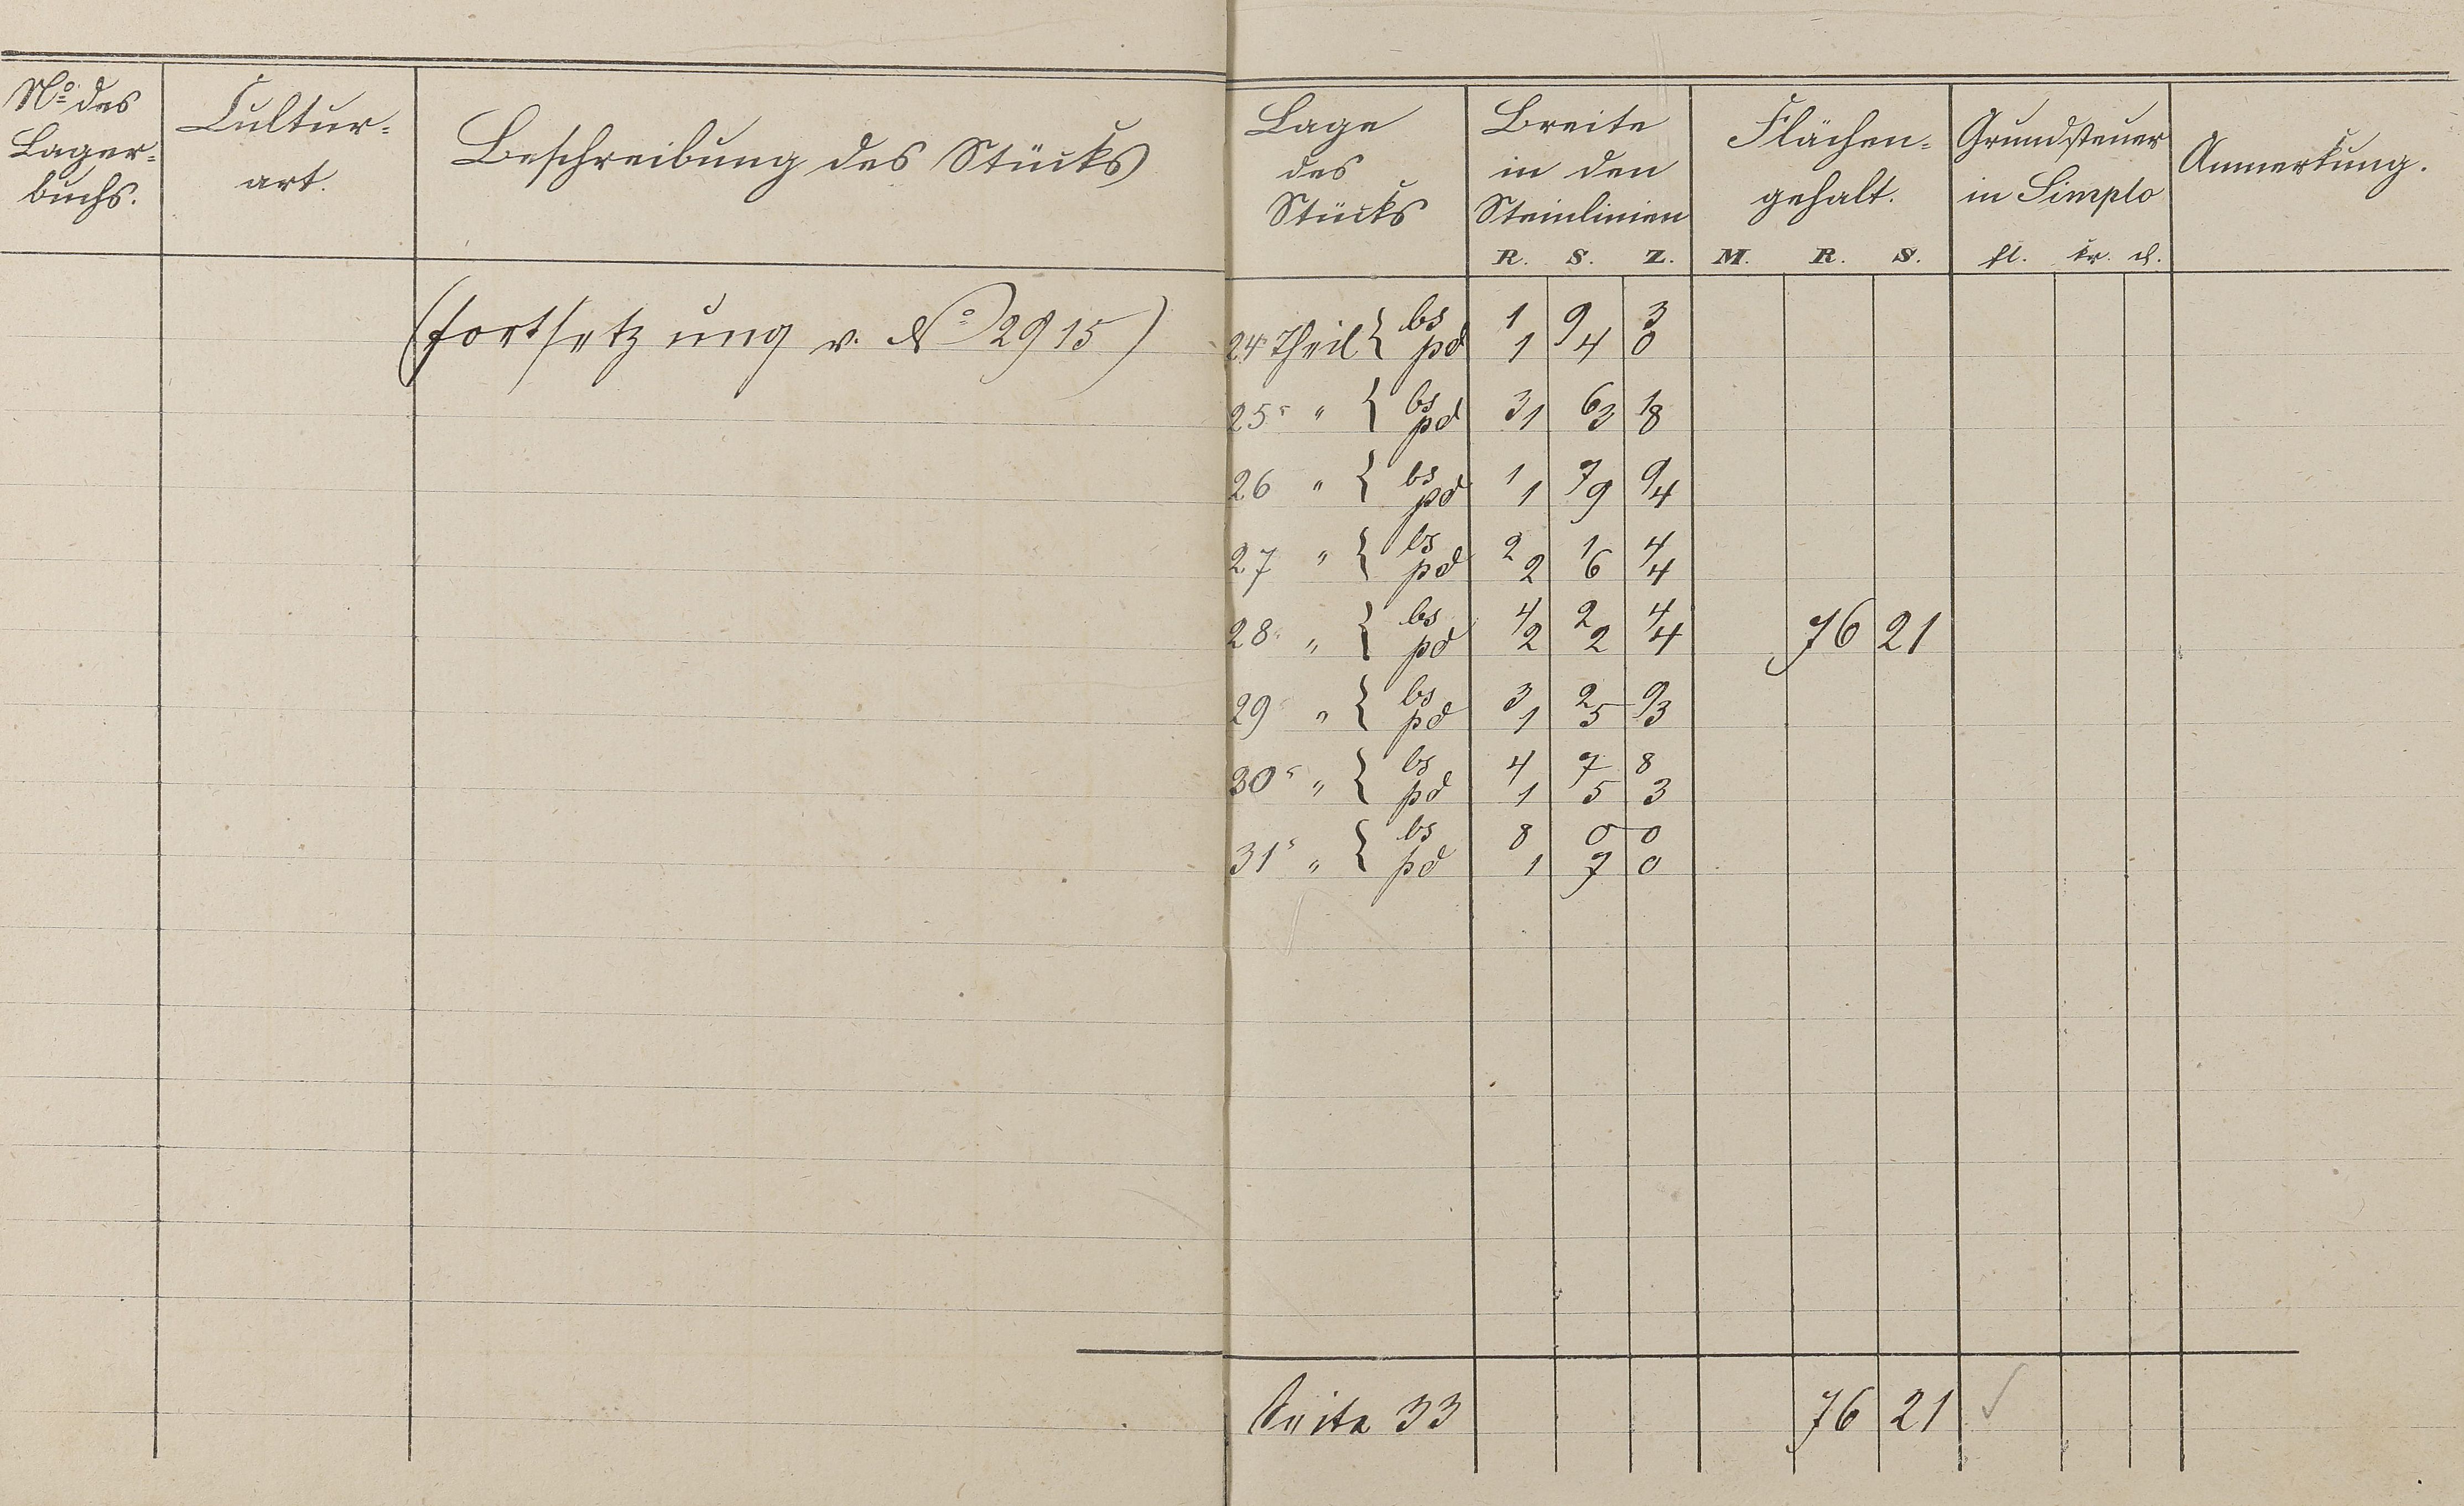 No des
Lager=
buchs.
Cultur=
art.
Beschreibung des Stücks
Lage
des
Stücks
Breite
in den
Steinlinien
R. S. Z.
Flächen=
gehalt.
M. R. S.
Grundsteuer
in Simplo
fl. kr. d.
Anmerkung.
(Fortsetzung v. No 2915)
24r Theil { bs 1 9 3
pd 1 4 0
25r " { bs 3 6 1
pd 1 3 8
26 " { bs 1 7 9
pd 1 9 4
27 " { bs 2 1 4
pd 2 6 4
28r " { bs 4 2 4
pd 2 2 4
76 21
29r " { bs 3 2 9
pd 1 5 3
30r " { bs 4 7 8
pd 1 5 3
31r " { bs 8 0 0
pd 1 7 0
Seite 33 76 21